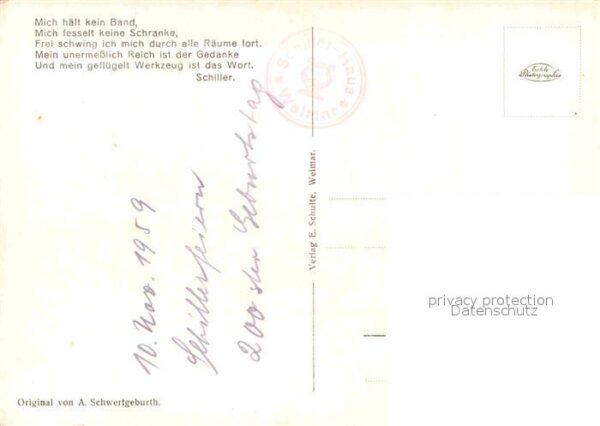 Mich hält kein Band,
Mich fesselt keine Schranke,
Frei schwing ich mich durch alle Räume fort.
Mein unermeßlich Reich ist der Gedanke
Und mein geflügelt Werkzeug ist das Wort.
Schiller.
Schiller-Haus
Weimar
Echte
Photographie
10. Nov. 1959
Schillerfeiern
200ster Geburtstag
Verlag E. Schulte, Weimar.
privacy protection
Datenschutz
Original von A. Schwertgeburth.